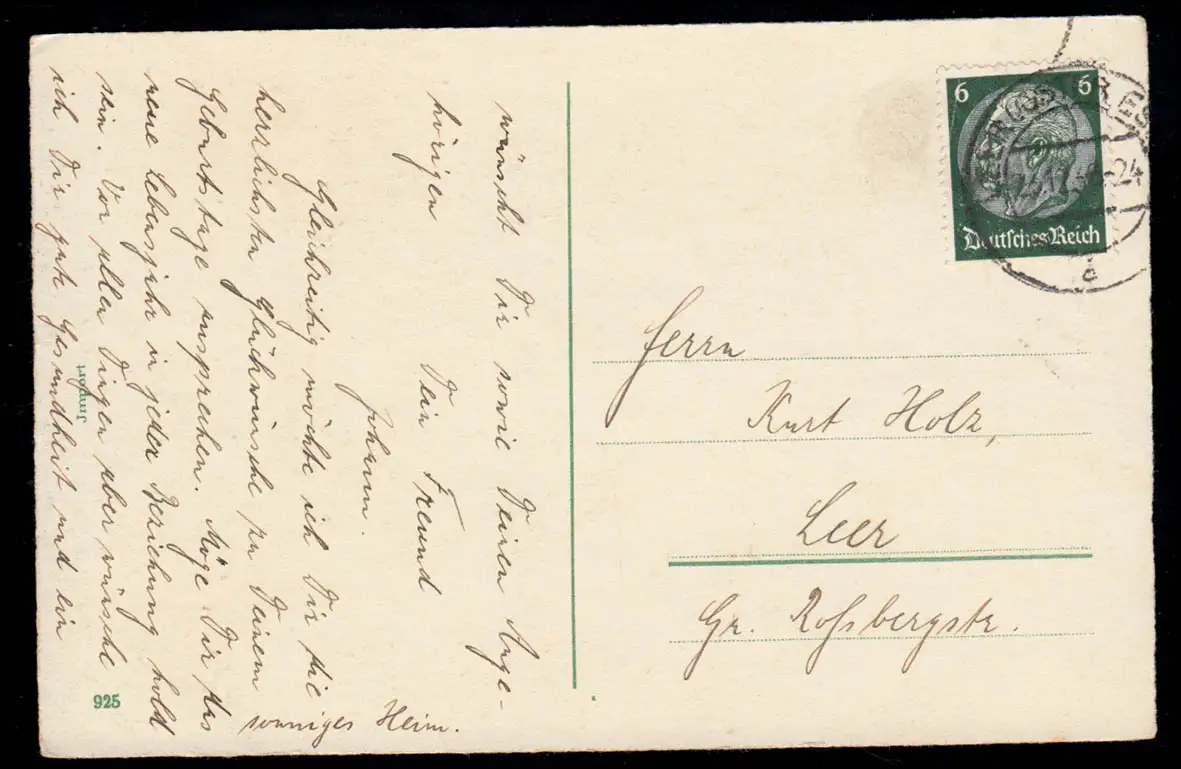 wünscht Dir sowie Deinen Ange-
hörigen Dein Freund
Johann.
Gleichzeitig möchte ich Dir die
herzlichsten Glückwünsche zu Deinem
Geburtstage aussprechen. Möge Dir das
neue Lebensjahr in jeder Beziehung hold
sein. Vor allen Dingen aber wünsche
ich Dir gute Gesundheit und ein
sonniges Heim.
925
Import
6 6
Deutsches Reich
24
a
Herrn
Kurt Holz,
Leer
Gr. Roßbergstr.